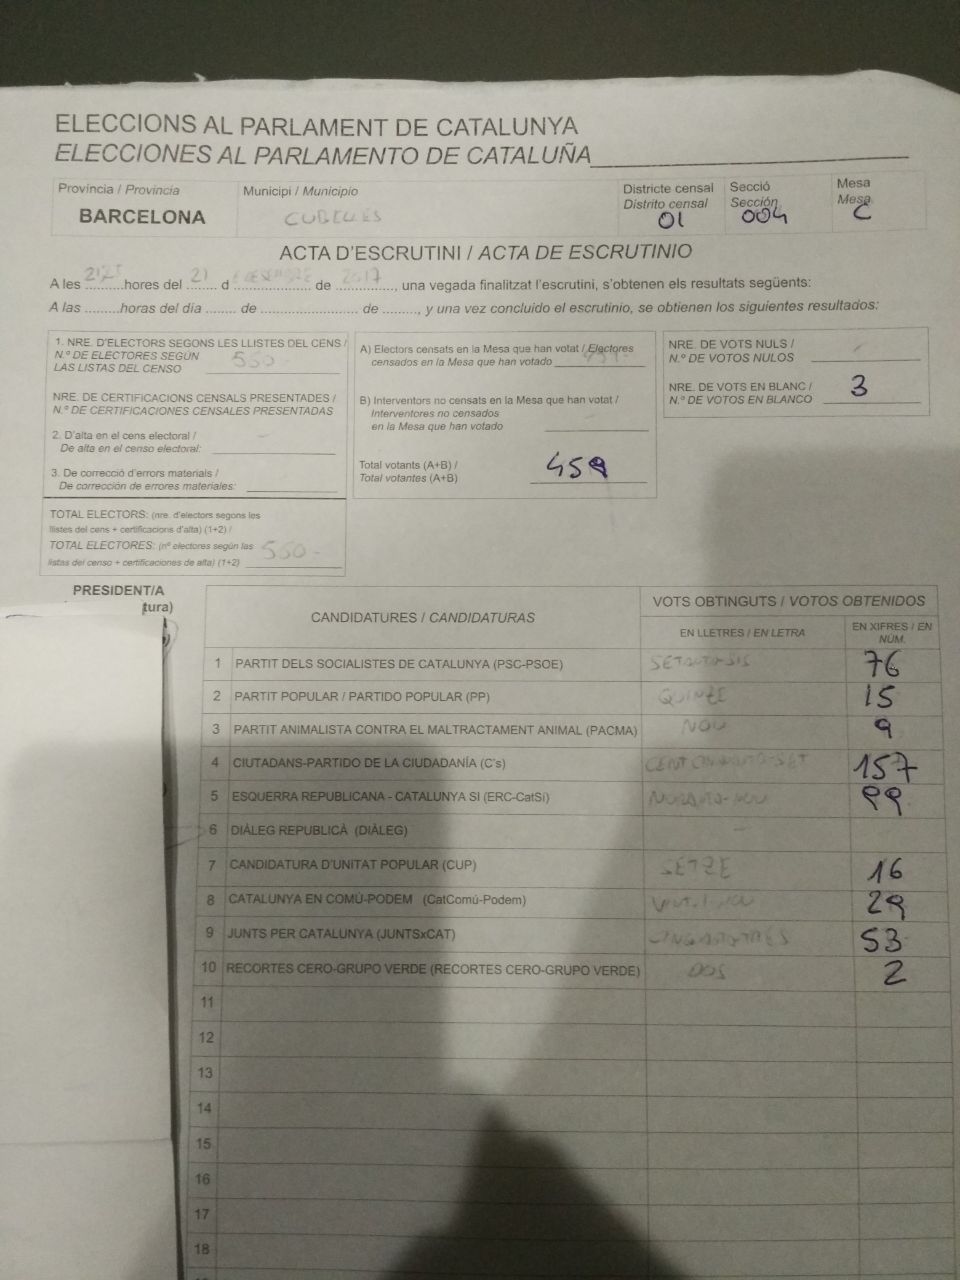 ELECCIONS AL PARLAMENT DE CATALUNYA
ELECCIONES AL PARLAMENTO DE CATALUÑA
Provincia / Provincia
BARCELONA
Municipi / Municipio
CUBELLES
Districte censal
Distrito censal
01
Secció
Sección
004
Mesa
Mesa
C
ACTA D'ESCRUTINI / ACTA DE ESCRUTINIO
A les ......... hores del 21 d DESEMBRE de 2017, una vegada finalitzat l'escrutini, s'obtenen els resultats següents:
A las .........horas del día ....... de ...................... de ........, y una vez concluido el escrutinio, se obtienen los siguientes resultados:
1. NRE. D'ELECTORS SEGONS LES LLISTES DEL CENS /
N.º DE ELECTORES SEGÚN
LAS LISTAS DEL CENSO 550
NRE. DE CERTIFICACIONS CENSALS PRESENTADES /
N.º DE CERTIFICACIONES CENSALES PRESENTADAS
2. D'alta en el cens electoral /
De alta en el censo electoral: -
3. De correcció d'errors materials /
De corrección de errores materiales:
TOTAL ELECTORS: (nre. d'electors segons les
llistes del cens + certificacions d'alta) (1+2) /
TOTAL ELECTORES: (nº electores según las
listas del censo + certificaciones de alta) (1+2) 550-
A) Electors censats en la Mesa que han votat / Electores
censados en la Mesa que han votado
B) Interventors no censats en la Mesa que han votat /
Interventores no censados
en la Mesa que han votado
Total votants (A+B) /
Total votantes (A+B) 459
NRE. DE VOTS NULS /
N.º DE VOTOS NULOS -
NRE. DE VOTS EN BLANC /
N.º DE VOTOS EN BLANCO 3
PRESIDENT/A
tura)
CANDIDATURES / CANDIDATURAS
VOTS OBTINGUTS / VOTOS OBTENIDOS
EN LLETRES / EN LETRA
EN XIFRES / EN NÚM.
1 PARTIT DELS SOCIALISTES DE CATALUNYA (PSC-PSOE) SETANTA-SIS 76
2 PARTIT POPULAR / PARTIDO POPULAR (PP) QUINZE 15
3 PARTIT ANIMALISTA CONTRA EL MALTRACTAMENT ANIMAL (PACMA) NOU 9
4 CIUTADANS-PARTIDO DE LA CIUDADANÍA (C's) CENT CINQUANTA-SET 157
5 ESQUERRA REPUBLICANA - CATALUNYA SI (ERC-CatSí) NORANTA-NOU 99
6 DIÀLEG REPUBLICÀ (DIÀLEG) -
7 CANDIDATURA D'UNITAT POPULAR (CUP) SETZE 16
8 CATALUNYA EN COMÚ-PODEM (CatComú-Podem) VINT-I-NOU 29
9 JUNTS PER CATALUNYA (JUNTSxCAT) 53
10 RECORTES CERO-GRUPO VERDE (RECORTES CERO-GRUPO VERDE) DOS 2
11
12
13
14
15
16
17
18